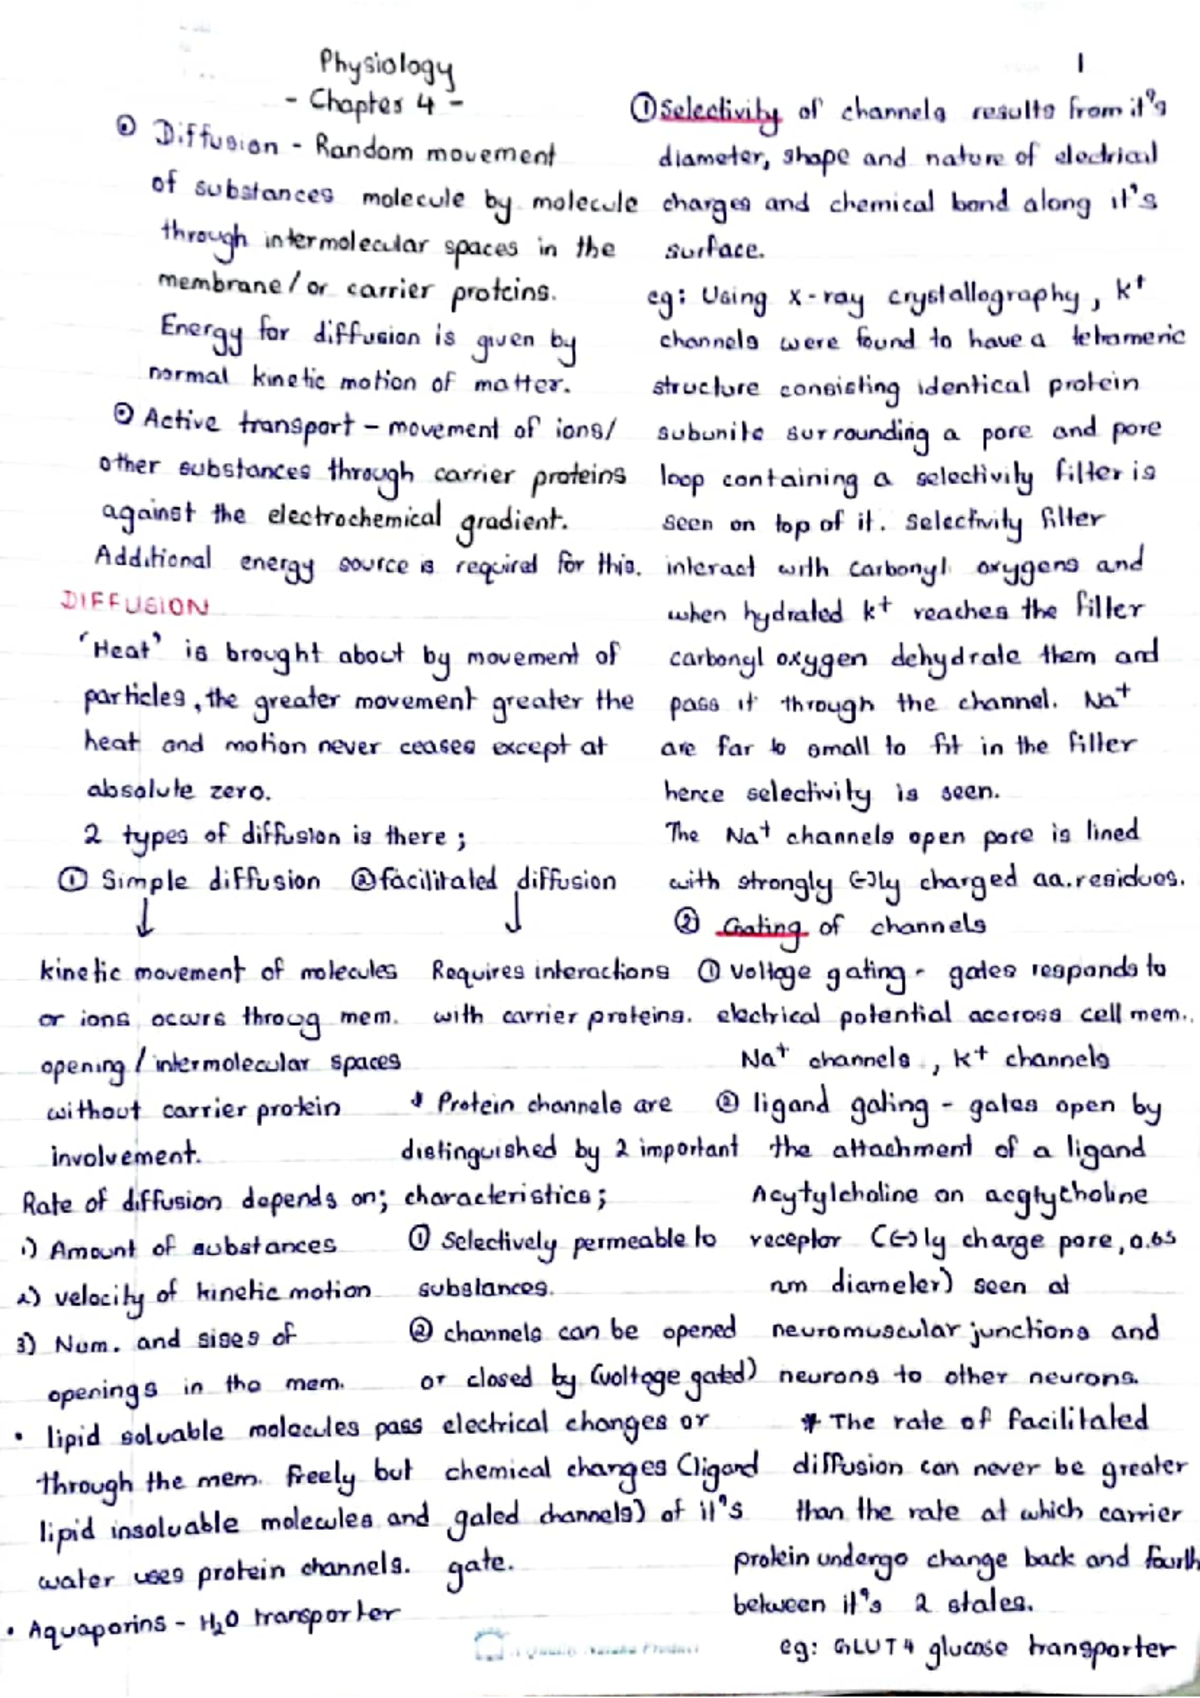 Physiology
- Chapter 4 -
1
⊙ Diffusion - Random movement
of substances molecule by molecule
through intermolecular spaces in the
membrane / or carrier proteins.
Energy for diffusion is given by
normal kinetic motion of matter.
⊙ Active transport - movement of ions/
other substances through carrier proteins
against the electrochemical gradient.
Additional energy source is required for this.
DIFFUSION
'Heat' is brought about by movement of
particles, the greater movement greater the
heat and motion never ceases except at
absolute zero.
2 types of diffusion is there ;
① Simple diffusion ② facilitated diffusion
↓ ↓
kinetic movement of molecules
or ions occurs throug mem.
opening / intermolecular spaces
without carrier protein
involvement.
Rate of diffusion depends on;
1) Amount of substances
2) velocity of kinetic motion
3) Num. and sises of
openings in the mem.
• lipid soluable molecules pass
through the mem. freely but
lipid insoluable molecules and
water uses protein channels.
• Aquaporins - H₂O transporter
Requires interactions
with carrier proteins.
* Protein channels are
distinguished by 2 important
characteristics;
① Selectively permeable to
substances.
② channels can be opened
or closed by (voltage gated)
electrical changes or
chemical changes (ligand
gated channels) of it's
gate.
① Selectivity of channels results from it's
diameter, shape and nature of electrical
charges and chemical bond along it's
surface.
eg: Using x-ray crystallography, K⁺
channels were found to have a tetrameric
structure consisting identical protein
subunits surrounding a pore and pore
loop containing a selectivity filter is
seen on top of it. Selectivity filter
interact with carbonyl oxygens and
when hydrated K⁺ reaches the filter
carbonyl oxygen dehydrate them and
pass it through the channel. Na⁺
are far to small to fit in the filter
hence selectivity is seen.
The Na⁺ channels open pore is lined
with strongly (-)ly charged aa. residues.
② Gating of channels
① Voltage gating - gates responds to
electrical potential accross cell mem..
Na⁺ channels, K⁺ channels
② ligand gating - gates open by
the attachment of a ligand
Acytylcholine on acytycholine
receptor ((-)ly charge pore, 0.65
nm diameter) seen at
neuromuscular junctions and
neurons to other neurons.
* The rate of facilitated
diffusion can never be greater
than the rate at which carrier
protein undergo change back and fourth
between it's 2 states.
eg: GLUT4 glucose transporter